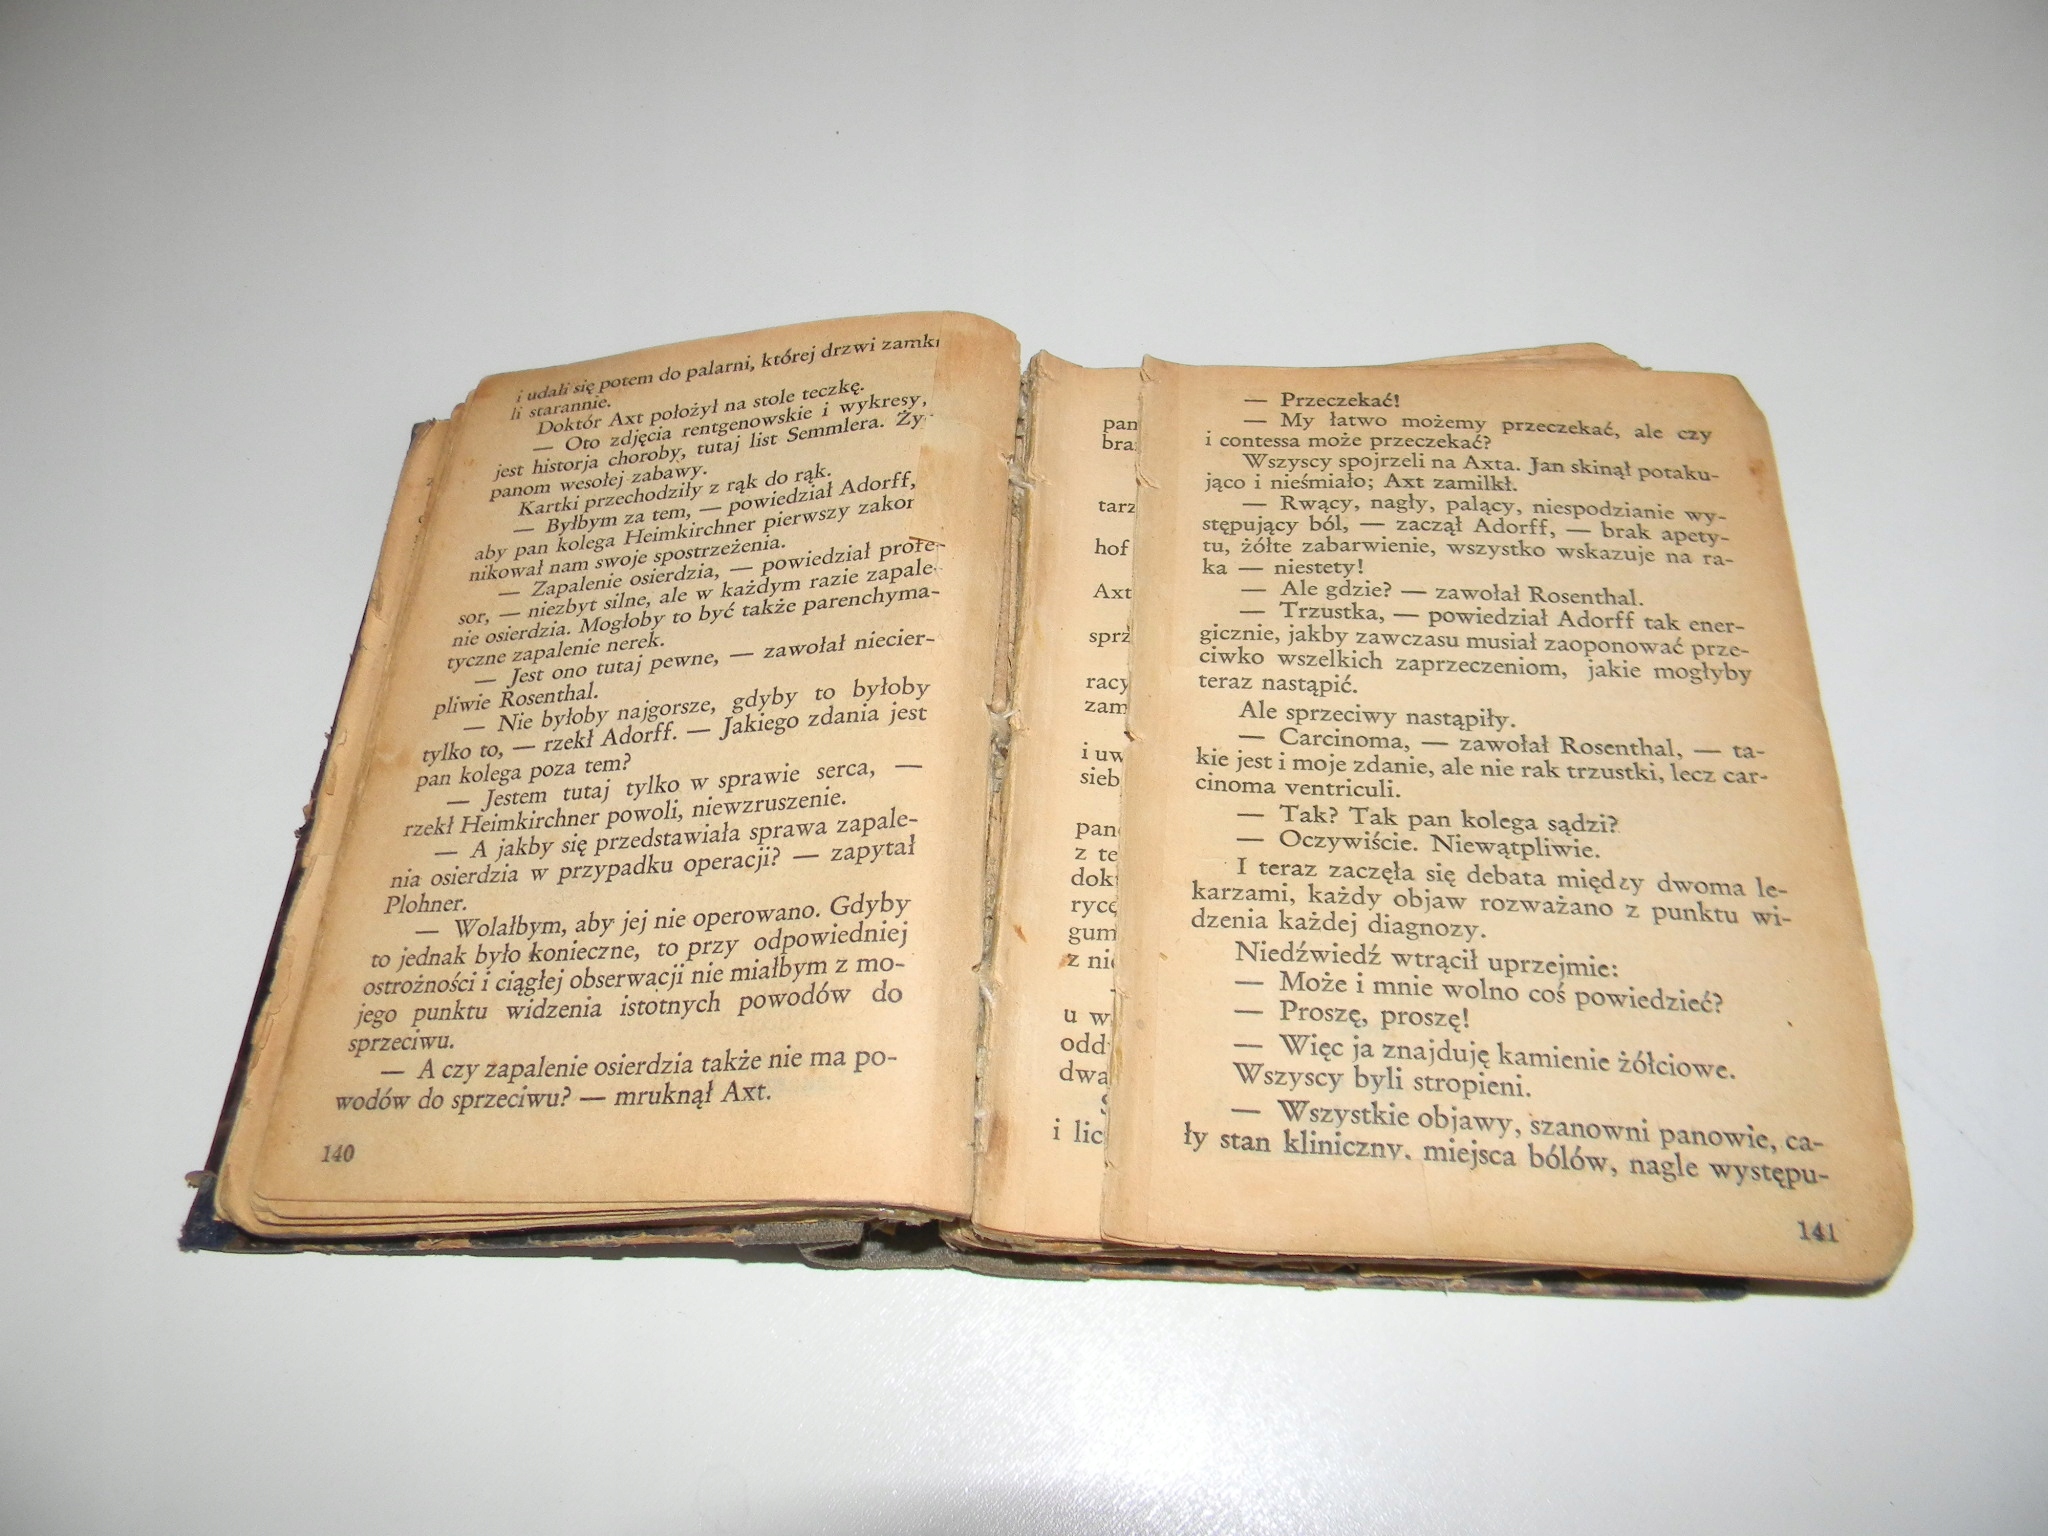 i udali się potem do palarni, której drzwi zamk
li starannie.
Doktór Axt położył na stole teczkę.
— Oto zdjęcia rentgenowskie i wykresy,
jest historja choroby, tutaj list Semmlera. Ży
panom wesołej zabawy.
Kartki przechodziły z rąk do rąk.
— Byłbym za tem, — powiedział Adorff,
aby pan kolega Heimkirchner pierwszy zako
nikował nam swoje spostrzeżenia.
— Zapalenie osierdzia, — powiedział profe-
sor, — niezbyt silne, ale w każdym razie zapale-
nie osierdzia. Mogłoby to być także parenchyma-
tyczne zapalenie nerek.
— Jest ono tutaj pewne, — zawołał niecier-
pliwie Rosenthal.
— Nie byłoby najgorsze, gdyby to byłoby
tylko to, — rzekł Adorff. — Jakiego zdania jest
pan kolega poza tem?
— Jestem tutaj tylko w sprawie serca, —
rzekł Heimkirchner powoli, niewzruszenie.
— A jakby się przedstawiała sprawa zapale-
nia osierdzia w przypadku operacji? — zapytał
Plohner.
— Wolałbym, aby jej nie operowano. Gdyby
to jednak było konieczne, to przy odpowiedniej
ostrożności i ciągłej obserwacji nie miałbym z mo-
jego punktu widzenia istotnych powodów do
sprzeciwu.
— A czy zapalenie osierdzia także nie ma po-
wodów do sprzeciwu? — mruknął Axt.
140
pan
bra
tarz
hof
Axt
sprz
racy
zam
i uw
sieb
pan
z te
dok
ryc
gum
z ni
u w
odd
dwa
i lic
— Przeczekać!
— My łatwo możemy przeczekać, ale czy
i contessa może przeczekać?
Wszyscy spojrzeli na Axta. Jan skinął potaku-
jąco i nieśmiało; Axt zamilkł.
— Rwący, nagły, palący, niespodzianie wy-
stępujący ból, — zaczął Adorff, — brak apety-
tu, żółte zabarwienie, wszystko wskazuje na ra-
ka — niestety!
— Ale gdzie? — zawołał Rosenthal.
— Trzustka, — powiedział Adorff tak ener-
gicznie, jakby zawczasu musiał zaoponować prze-
ciwko wszelkich zaprzeczeniom, jakie mogłyby
teraz nastąpić.
Ale sprzeciwy nastąpiły.
— Carcinoma, — zawołał Rosenthal, — ta-
kie jest i moje zdanie, ale nie rak trzustki, lecz car-
cinoma ventriculi.
— Tak? Tak pan kolega sądzi?
— Oczywiście. Niewątpliwie.
I teraz zaczęła się debata między dwoma le-
karzami, każdy objaw rozważano z punktu wi-
dzenia każdej diagnozy.
Niedźwiedź wtrącił uprzejmie:
— Może i mnie wolno coś powiedzieć?
— Proszę, proszę!
— Więc ja znajduję kamienie żółciowe.
Wszyscy byli stropieni.
— Wszystkie objawy, szanowni panowie, ca-
ły stan kliniczny, miejsca bólów, nagle występu-
141